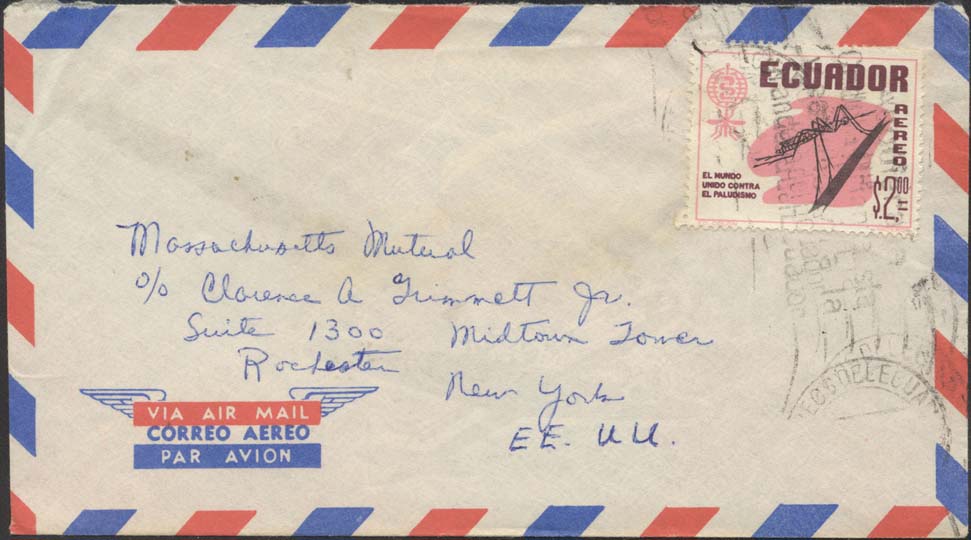 ECUADOR
AEREO
EL MUNDO
UNIDO CONTRA
EL PALUDISMO
$2,00
Massachusetts Mutual
c/o Clarence A Grimmett Jr.
Suite 1300 Midtown Tower
Rochester
New York
EE. UU.
VIA AIR MAIL
CORREO AEREO
PAR AVION